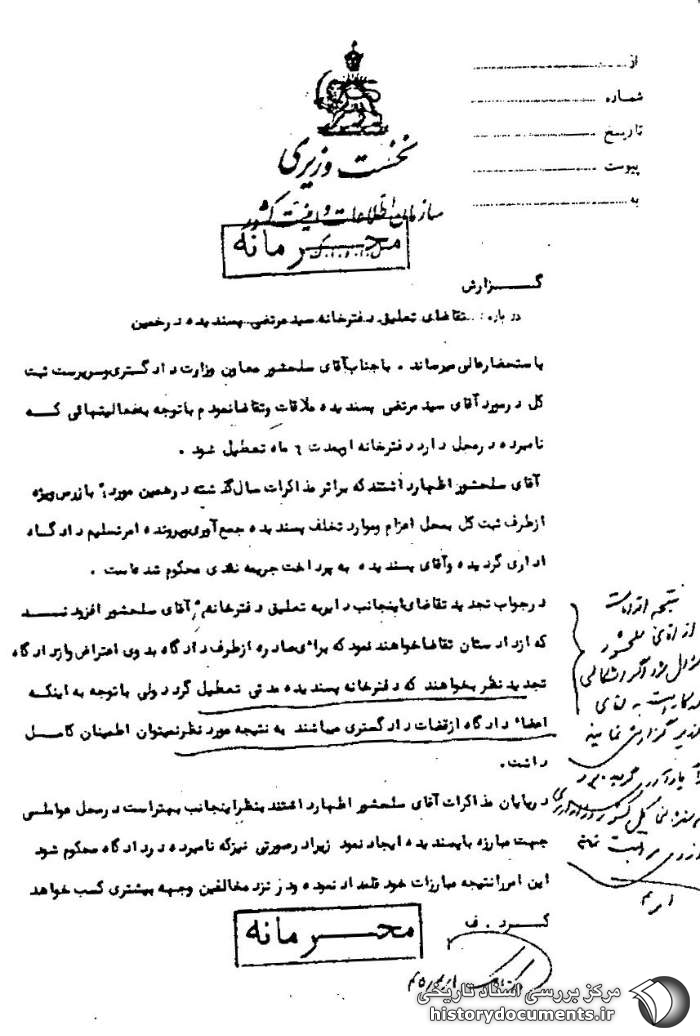 از
شماره
تاریخ
پیوست
به
نخست وزیری
سازمان اطلاعات و امنیت کشور
محرمانه
گزارش
درباره: تقاضای تعلیق دفترخانه سید مرتضی پسندیده در خمین
باستحضارعالی میرساند . باجناب آقای سلحشور معاون وزارت دادگستری و سرپرست ثبت
کل درمورد آقای سید مرتضی پسندیده ملاقات وتقاضانمودم باتوجه بفعالیتهائی که
نامبرده درمحل دارد دفترخانه اوبمدت ٦ ماه تعطیل شود .
آقای سلحشور اظهارداشتند که براثر مذاکرات سال گذشته درهمین مورد بازرس ویژه
ازطرف ثبت کل بمحل اعزام وموارد تخلف پسندیده جمع آوری وپرونده امر تسلیم دادگاه
اداری گردیده وآقای پسندیده به پرداخت جریمه نقدی محکوم شده است .
درجواب تجدید تقاضای اینجانب دایربه تعلیق دفترخانه آقای سلحشور افزودند
که ازدادستان تقاضاخواهند نمود که برای صادره ازطرف دادگاه بدوی اعتراض وازدادگاه
تجدید نظر بخواهند که دفترخانه پسندیده مدتی تعطیل گردد ولی باتوجه به اینکه
اعضاء دادگاه ازقضات دادگستری میباشند به نتیجه مورد نظرنمیتوان اطمینان کامل
داشت.
درپایان مذاکرات آقای سلحشور اظهارداشتند بنظراینجانب بهتراست درمحل عواملی
جهت مبارزه باپسندیده ایجاد نمود زیرا درصورتی نیزکه نامبرده دردادگاه محکوم شود
این امررانتیجه مبارزات خود قلمداد نموده ودر نزد مخالفین وجهه بیشتری کسب خواهد
کرد . ف
محرمانه
نتیجه اقدامات
از آقای سلحشور
سوال شود اگر اشکالی
مرکز بررسی اسناد تاریخی
historydocuments.ir